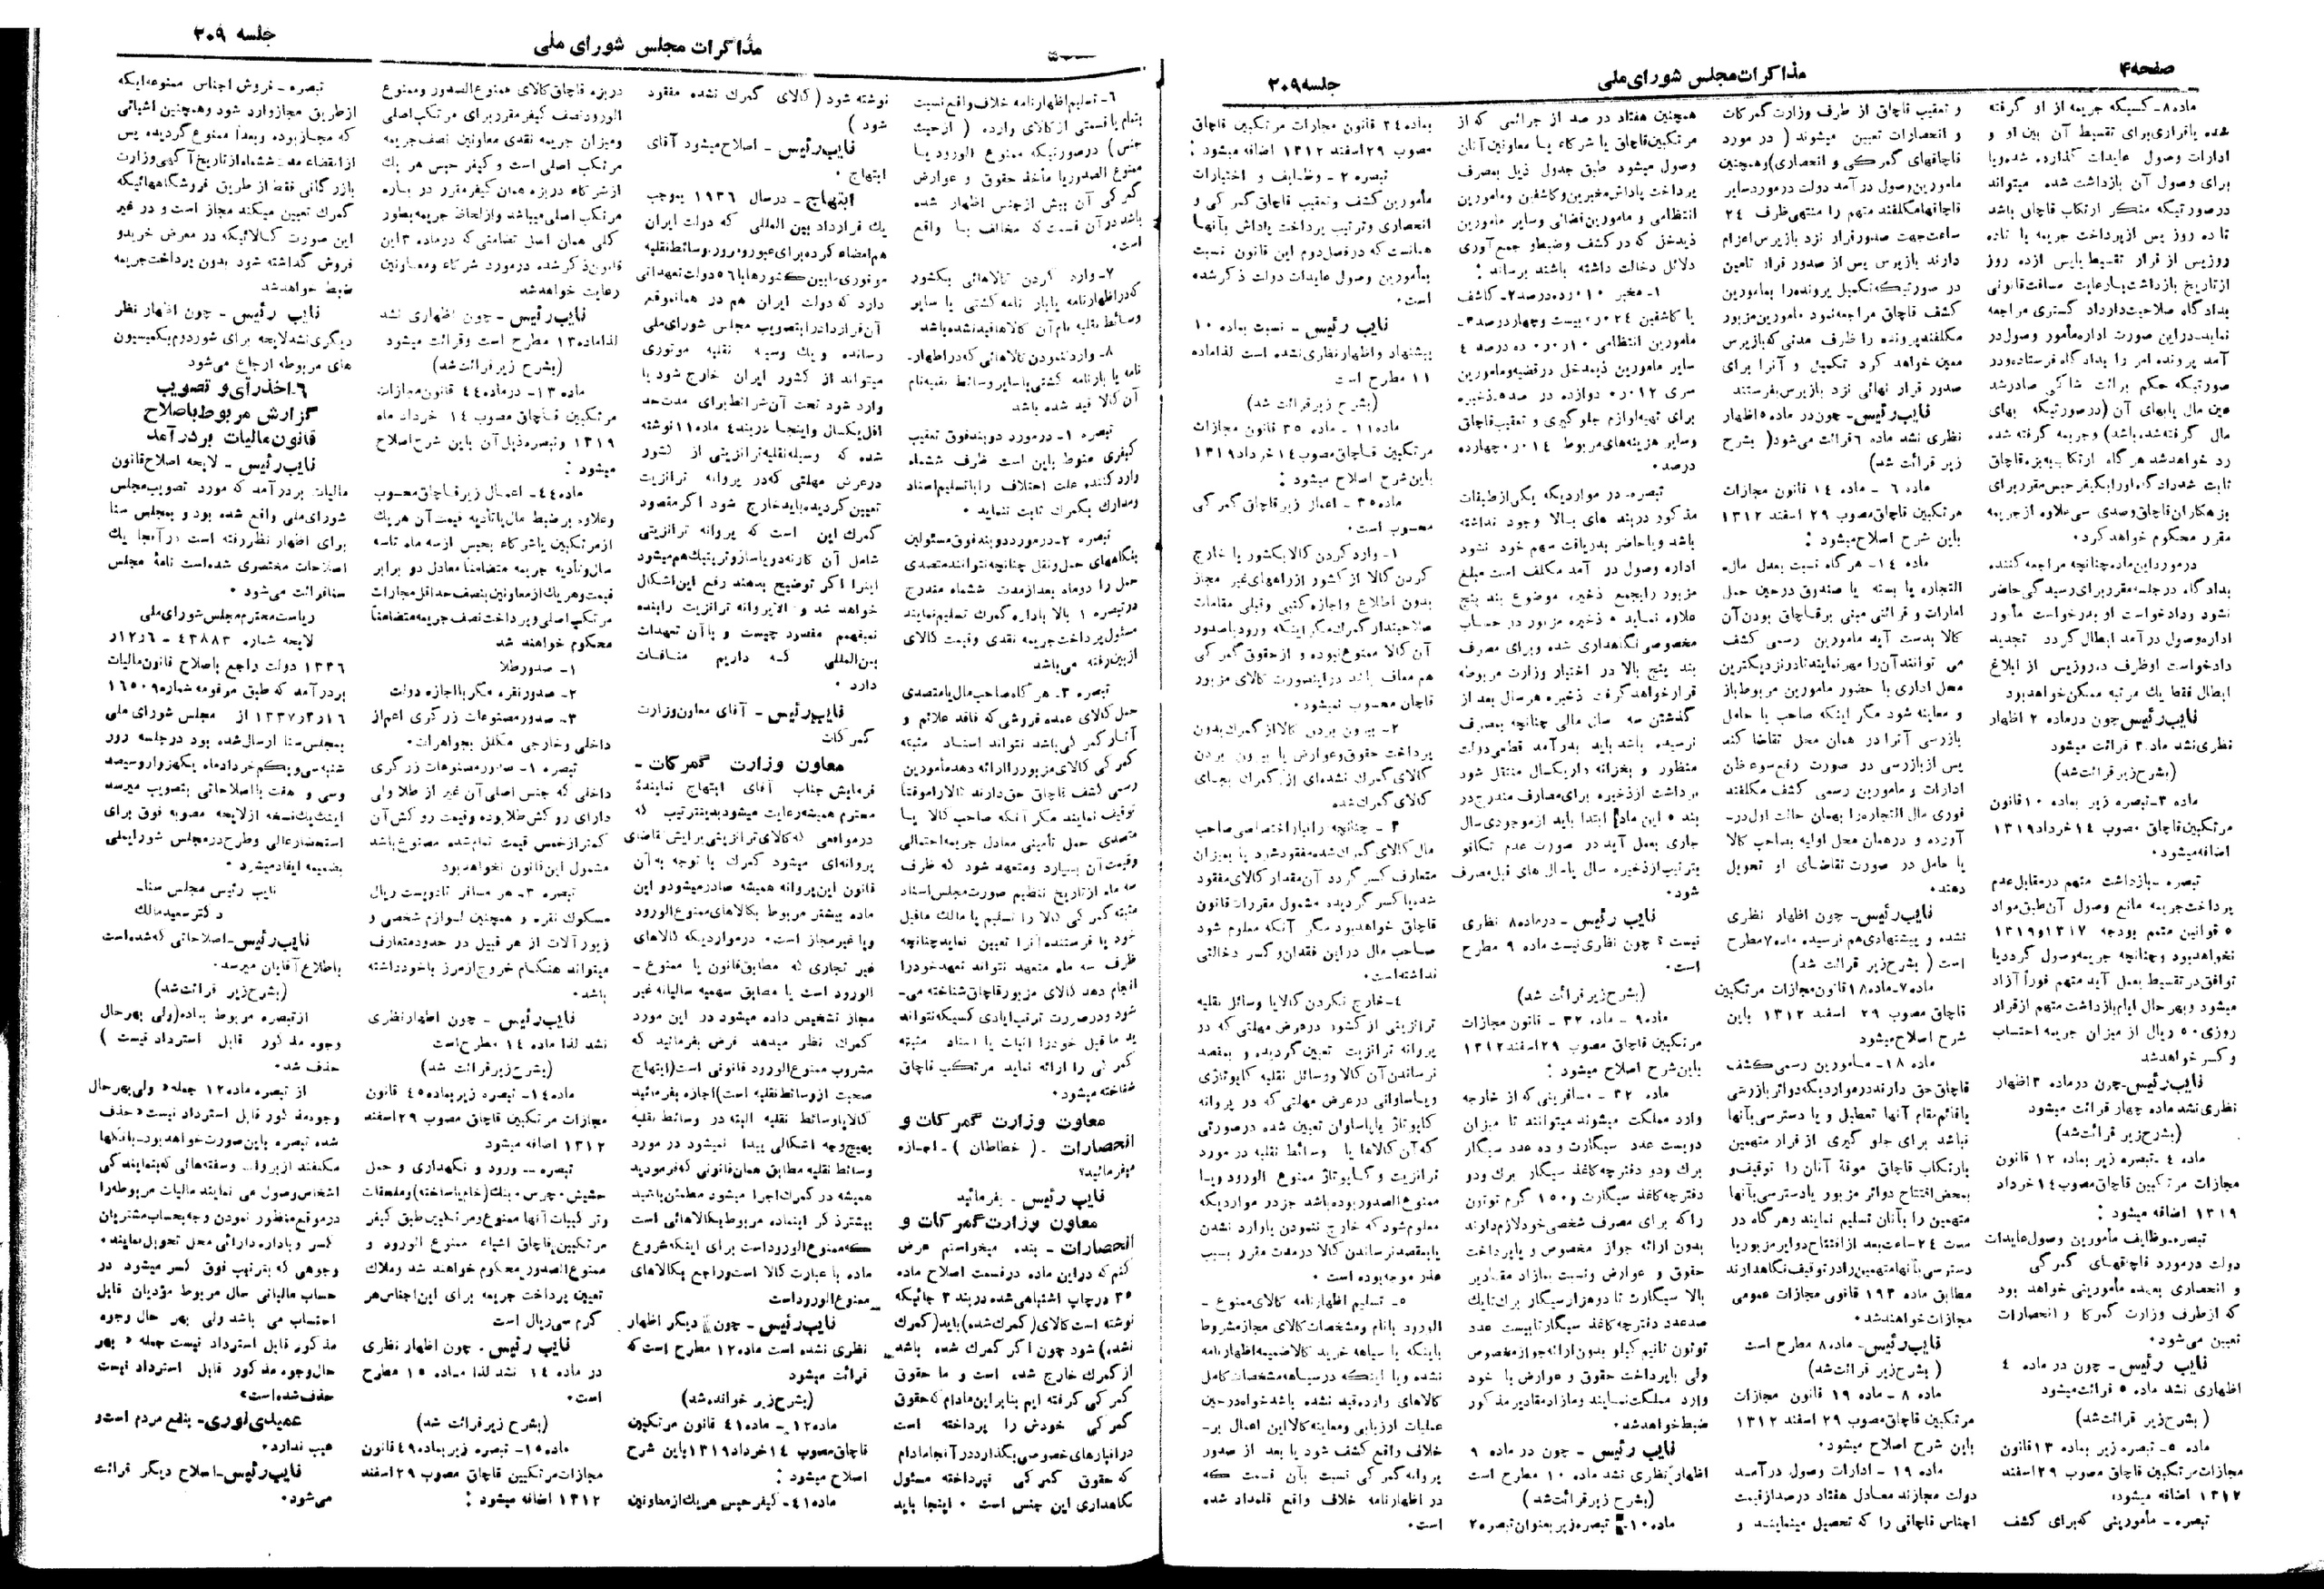 صفحه۴
مذاکرات مجلس شورای ملی
جلسه ۳۰۹
ماده ۸- کسیکه جریمه از او گرفته
شده یا قراری برای تقسیط آن بین او و
ادارات وصول عایدات گذارده شده و یا
برای وصول آن بازداشت شده میتواند
در صورتیکه منکر ارتکاب قاچاق باشد
تا ده روز پس از پرداخت جریمه یا تا ده
روز پس از قرار تقسیط یا پس از ده روز
از تاریخ بازداشت با رعایت مسافت قانونی
بدادگاه صلاحیت دار دادگستری مراجعه
نماید- در این صورت اداره مأمور وصول در
آمد پرونده امر را بدادگاه فرستاده و در
صورتیکه حکم برائت شاکی صادر شد
عین مال یا بهای آن (در صورتیکه بهای
مال گرفته شده باشد) و جریمه گرفته شده
رد خواهد شد هر گاه ارتکاب به بزه قاچاق
ثابت شد دادگاه او را بکیفر حبس مقرر برای
بزهکاران قاچاق و صدی سی علاوه از جریمه
مقرر محکوم خواهد کرد.
در مورد این ماده چنانچه مراجعه کننده
بدادگاه در جلسه مقرر برای رسیدگی حاضر
نشود و دادخواست او بدرخواست مأمور
اداره وصول درآمد ابطال گردد تجدید
دادخواست او ظرف ده روز پس از ابلاغ
ابطال فقط یک مرتبه ممکن خواهد بود
نایب رئیس- چون در ماده ۲ اظهار
نظری نشد ماده ۳ قرائت میشود
(بشرح زیر قرائت شد)
ماده ۳- تبصره زیر بماده ۱۰ قانون
مرتکبین قاچاق مصوب ۱۴ خرداد ۱۳۱۹
اضافه میشود.
تبصره- بازداشت متهم در مقابل عدم
پرداخت جریمه مانع وصول آن طبق مواد
۵ قوانین متمم بودجه ۱۳۱۷ و ۱۳۱۹
نخواهد بود و چنانچه جریمه وصول گردد یا
توافق در تقسیط بعمل آید متهم فوراً آزاد
میشود و بهر حال ایام بازداشت متهم از قرار
روزی ۵۰ ریال از میزان جریمه احتساب
و کسر خواهد شد
نایب رئیس- چون در ماده ۳ اظهار
نظری نشد ماده چهار قرائت میشود
(بشرح زیر قرائت شد)
ماده ۴- تبصره زیر بماده ۱۲ قانون
مجازات مرتکبین قاچاق مصوب ۱۴ خرداد
۱۳۱۹ اضافه میشود:
تبصره- وظایف مأمورین وصول عایدات
دولت در مورد قاچاقهای گمرکی
و انحصاری بعهده مأمورینی خواهد بود
که از طرف وزارت گمرکات و انحصارات
تعیین می‌شود.
نایب رئیس- چون در ماده ۴
اظهاری نشد ماده ۵ قرائت میشود
(بشرح زیر قرائت شد)
ماده ۵- تبصره زیر بماده ۱۳ قانون
مجازات مرتکبین قاچاق مصوب ۲۹ اسفند
۱۳۱۲ اضافه میشود:
تبصره- مأمورینی که برای کشف
و تعقیب قاچاق از طرف وزارت گمرکات
و انحصارات تعیین میشوند (در مورد
قاچاقهای گمرکی و انحصاری) و همچنین
مامورین وصول درآمد دولت در مورد سایر
قاچاقها مکلفند متهم را منتهی ظرف ۲۴
ساعت جهت صدور قرار نزد بازپرس اعزام
دارند بازپرس پس از صدور قرار تامین
در صورتیکه تکمیل پرونده را بمامورین
کشف قاچاق مراجعه نمود مامورین مزبور
مکلفند پرونده را ظرف مدتی که بازپرس
معین خواهد کرد تکمیل و آنرا برای
صدور قرار نهائی نزد بازپرس بفرستند
نایب رئیس- چون در ماده ۵ اظهار
نظری نشد ماده ۶ قرائت می‌شود (بشرح
زیر قرائت شد)
ماده ۶ - ماده ۱۴ قانون مجازات
مرتکبین قاچاق مصوب ۲۹ اسفند ۱۳۱۲
باین شرح اصلاح میشود:
ماده ۱۴- هر گاه نسبت بعدل مال
التجاره یا بسته یا صندوق در حین حمل
امارات و قرائنی مبنی بر قاچاق بودن آن
کالا بدست آید مامورین رسمی کشف
می توانند آن را مهر نمایند تا در نزدیکترین
محل اداری با حضور مامورین مربوط باز
و معاینه شود مگر اینکه صاحب یا حامل
بازرسی آنرا در همان محل تقاضا کند
پس از بازرسی در صورت رفع سوءظن
ادارات و مامورین رسمی کشف مکلفند
فوری مال التجاره را بهمان حالت اول در-
آورده و در همان محل اولیه بصاحب کالا
یا حامل در صورت تقاضای او تحویل
دهند.
نایب رئیس- چون اظهار نظری
نشده و پیشنهادی هم نرسیده ماده ۷ مطرح
است (بشرح زیر قرائت شد)
ماده ۷- ماده ۱۸ قانون مجازات مرتکبین
قاچاق مصوب ۲۹ اسفند ۱۳۱۲ باین
شرح اصلاح میشود
ماده ۱۸- مامورین رسمی کشف
قاچاق حق دارند در مواردیکه دوائر بازرشی
یا قائم مقام آنها تعطیل و یا دسترسی بآنها
نباشد برای جلوگیری از فرار متهمین
بارتکاب قاچاق موقة آنان را توقیف و
بمحض افتتاح دوائر مزبور یا دسترسی بآنها
متهمین را بآنان تسلیم نمایند و هر گاه در
مدت ۲۴ ساعت بعد از افتتاح دوایر مزبور یا
دسترسی بآنها متهمین را در توقیف نگاهدارند
مطابق ماده ۱۹۳ قانونی مجازات عمومی
مجازات خواهند شد.
نایب رئیس- ماده ۸ مطرح است
(بشرح زیر قرائت شد)
ماده ۸ - ماده ۱۹ قانون مجازات
مرتکبین قاچاق مصوب ۲۹ اسفند ۱۳۱۲
باین شرح اصلاح میشود.
ماده ۱۹ - ادارات وصول درآمد
دولت مجازند معادل هفتاد درصد از قیمت
اجناس قاچاقی را که تحصیل مینمایند و
همچنین هفتاد در صد از جرائمی که از
مرتکبین قاچاق یا شرکاء یا معاونین آنان
وصول میشود طبق جدول ذیل بمصرف
پرداخت پاداش مخبرین و کاشفین و مامورین
انتظامی و مامورین قضائی و سایر مامورین
ذیدخل که در کشف و ضبط و جمع آوری
دلائل دخالت داشته باشند برساند:
۱- مخبر ۱۰ر۰ ده درصد ۲- کاشف
یا کاشفین ۲۴ر۰ بیست و چهار درصد ۳-
مامورین انتظامی ۱۰ر۰ ده درصد ۴
سایر مامورین ذیمدخل در قضیه و مامورین
سری ۱۲ر۰ دوازده در صد ۵- ذخیره
برای تهیه لوازم جلوگیری و تعقیب قاچاق
و سایر هزینه‌های مربوط ۱۴ر۰ چهارده
درصد.
تبصره- در مواردیکه یکی از طبقات
مذکور در بند های بالا وجود نداشته
باشد و یا حاضر بدریافت سهم خود نشود
اداره وصول درآمد مکلف است مبلغ
مزبور را بجمع ذخیره موضوع بند پنج
علاوه نماید. ذخیره مزبور در حساب
مخصوصی نگاهداری شده و برای مصرف
بند پنج بالا در اختیار وزارت مربوطه
قرار خواهد گرفت ذخیره هر سال بعد از
گذشتن سه سال مالی چنانچه بمصرف
نرسیده باشد باید بدرآمد قطعی دولت
منظور و بخزانه دار یکسال منتقل شود
برداشت از ذخیره برای مصارف مندرج در
بند ۵ این ماده ابتدا باید از موجودی سال
جاری بعمل آید در صورت عدم تکافو
بترتیب از ذخیره سال یا سال های قبل مصرف
شود.
نایب رئیس- در ماده ۸ نظری
نیست؟ چون نظری نیست ماده ۹ مطرح
است.
(بشرح زیر قرائت شد)
ماده ۹- ماده ۳۲ - قانون مجازات
مرتکبین قاچاق مصوب ۲۹ اسفند ۱۳۱۲
باین شرح اصلاح میشود:
ماده ۳۲ - مسافرینی که از خارجه
وارد مملکت میشوند میتوانند تا میزان
دویست عدد سیگارت و ده عدد سیگار
برگ و دو دفترچه کاغذ سیگار برگ و دو
دفترچه کاغذ سیگارت و ۱۵۰ گرم توتون
راکه برای مصرف شخصی خود لازم دارند
بدون ارائه جواز مخصوص و با پرداخت
حقوق و عوارض و نسبت بمازاد مقادیر
بالا سیگارت تا دو هزار سیگار برگ تا یک
صد عدد دفترچه کاغذ سیگار تا بیست عدد
توتون تا نیم کیلو بدون ارائه جواز مخصوص
ولی با پرداخت حقوق و عوارض با خود
وارد مملکت نمایند و مازاد مقادیر مذکور
ضبط خواهد شد.
نایب رئیس - چون در ماده ۹
اظهار نظری نشد ماده ۱۰ مطرح است
(بشرح زیر قرائت شد)
ماده ۱۰- تبصره زیر بعنوان تبصره ۲
بماده ۳۴ قانون مجازات مرتکبین قاچاق
مصوب ۲۹ اسفند ۱۳۱۲ اضافه میشود:
تبصره ۲ - وظایف و اختیارات
مأمورین کشف و تعقیب قاچاق گمرکی و
انحصاری و ترتیب پرداخت پاداش بآنها
همانست که در فصل دوم این قانون نسبت
بمأمورین وصول عایدات دولت ذکر شده
است.
نایب رئیس - نسبت بماده ۱۰
پیشنهاد و اظهار نظری نشده است لذا ماده
۱۱ مطرح است
(بشرح زیر قرائت شد)
ماده ۱۱- ماده ۳۵ قانون مجازات
مرتکبین قاچاق مصوب ۱۴ خرداد ۱۳۱۹
باین شرح اصلاح میشود:
ماده ۳۵ - اعمال زیر قاچاق گمرکی
محسوب است.
۱- وارد کردن کالا بکشور یا خارج
کردن کالا از کشور از راههای غیر مجاز
بدون اطلاع و اجازه کتبی و قبلی مقامات
صلاحیتدار گمرک مگر اینکه ورود یا صدور
آن کالا ممنوع نبوده و از حقوق گمرکی
هم معاف باشد در اینصورت کالای مزبور
قاچاق محسوب نمیشود.
۲- بیرون بردن کالا از گمرک بدون
پرداخت حقوق و عوارض یا بیرون بردن
کالای گمرک نشده‌ای از گمرک بجای
کالای گمرک شده
۳ - چنانچه در انبار اختصاصی صاحب
مال کالای گمرک شده مفقود شود یا بمیزان
متعارف کسر گردد آن مقدار کالای مفقود
شده یا کسر گردیده مشمول مقررات قانون
قاچاق خواهد بود مگر آنکه معلوم شود
صاحب مال در این فقدان و کسر دخالتی
نداشته است.
۴- خارج نکردن کالا یا وسائل نقلیه
ترانزیتی از کشور در عرض مهلتی که در
پروانه ترانزیت تعیین گردیده و بمقصد
نرساندن آن کالا و وسائل نقلیه کابوتاژی
و یا ساوانی در عرض مهلتی که در پروانه
کابوتاژ یا یاساوان تعیین شده در صورتی
که آن کالاها یا وسائط نقلیه در مورد
ترانزیت و کابوتاژ ممنوع الورود و یا
ممنوع الصدور بوده باشد جز در مواردیکه
معلوم شود که خارج ننمودن یا وارد نشدن
یا بمقصد نرساندن کالا در مدت مقرر بسبب
عذر موجه بوده است.
۵- تسلیم اظهارنامه کالای ممنوع -
الورود با نام و مشخصات کالای مجاز مشروط
باینکه یا سیاهه خرید کالا ضمیمه اظهارنامه
نشده و یا اینکه در سیاهه مشخصات کامل
کالاهای وارده قید نشده باشد خواه در حین
عملیات ارزیابی و معاینه کالا این اعمال بر-
خلاف واقع کشف شود یا بعد از صدور
پروانه گمرکی نسبت بآن قسمت که
در اظهارنامه خلاف واقع قلمداد شده
است.
مذاکرات مجلس شورای ملی
جلسه ۳۰۹
۶- تسلیم اظهارنامه خلاف واقع نسبت
بتمام یا قسمتی از کالای وارده (از حیث
جنس) در صورتیکه ممنوع الورود یا
ممنوع الصدور یا مأخذ حقوق و عوارض
گمرکی آن بیش از جنس اظهار شده
باشد در آن قسمت که مخالف با واقع
است.
۷- وارد کردن کالاهائی بکشور
که در اظهارنامه یا بار نامه کشتی یا سایر
وسائط نقلیه نام آن کالاها قید نشده باشد
۸- وارد نمودن کالاهائی که در اظهار-
نامه یا بارنامه کشتی یا سایر وسائط نقلیه نام
آن کالا قید شده باشد
تبصره ۱- در مورد دو بند فوق تعقیب
کیفری منوط باین است ظرف ششماه
وارد کننده علت اختلاف را با تسلیم اسناد
و مدارک بگمرک ثابت ننماید.
تبصره ۲- در مورد دو بند فوق مسئولین
بنگاههای حمل و نقل چنانچه نتوانند متصدی
حمل را دو ماه بعد از مدت ششماه مندرج
در تبصره ۱ بالا باداره گمرک تسلیم نمایند
مسئول پرداخت جریمه نقدی و قیمت کالای
از بین رفته می‌باشد
تبصره ۳- هر گاه صاحب مال یا متصدی
حمل کالای عمده فروشی که فاقد علائم و
آثار گمرکی باشد نتواند اسناد مثبته
گمرکی کالای مزبور را ارائه دهد مأمورین
رسمی کشف قاچاق حق دارند کالا را موقتاً
توقیف نمایند مگر آنکه صاحب کالا یا
متصدی حمل تأمینی معادل جریمه احتمالی
و قیمت آن بسپارد و متعهد شود که ظرف
سه ماه از تاریخ تنظیم صورت مجلس اسناد
مثبته گمرکی کالا را تسلیم یا مالک ماقبل
خود یا فرستنده آنرا تعیین نماید چنانچه
ظرف سه ماه متعهد نتواند تعهد خود را
انجام دهد کالای مزبور قاچاق شناخته می-
شود و در صورت ترتب ایادی کسیکه نتواند
ید ماقبل خود را اثبات یا اسناد مثبته
گمرکی را ارائه نماید مرتکب قاچاق
شناخته میشود.
معاون وزارت گمرکات و
انحصارات - (خطاطان) - اجازه
میفرمائید؟
نایب رئیس - بفرمائید
معاون وزارت گمرکات و
انحصارات - بنده میخواستم عرض
کنم که در این ماده در قسمت اصلاح ماده
۳۵ در چاپ اشتباهی شده در بند ۳ جائیکه
نوشته است کالای (گمرک شده) باید (گمرک
نشده) شود چون اگر گمرک شده باشد
از گمرک خارج شده است و ما حقوق
گمرکی گرفته ایم بنابراین مادام که حقوق
گمرکی خودش را پرداخته است
در انبارهای خصوصی بگذارد در آنجا مادام
که حقوق گمرکی نپرداخته مسئول
نگاهداری این جنس است. اینجا باید
نوشته شود (کالای گمرک نشده مفقود
شود)
نایب رئیس - اصلاح میشود آقای
ابتهاج.
ابتهاج - در سال ۱۹۳۶ بموجب
یک قرارداد بین المللی که دولت ایران
هم امضاء کرده برای عبور و مرور وسائط نقلیه
موتوری مابین کشورها با ۵۶ دولت تعهداتی
دارد که دولت ایران هم در همان موقع
آن قرارداد را بتصویب مجلس شورای ملی
رسانده و یک وسیله نقلیه موتوری
میتواند از کشور ایران خارج شود یا
وارد شود تحت آن شرائط برای مدت حد
اقل یکسال و اینجا در بند ۴ ماده ۱۱ نوشته
شده که وسیله نقلیه ترانزیتی از کشور
در عرض مهلتی که در پروانه ترانزیت
تعیین گردیده باید خارج شود اگر مقصود
گمرک این است که پروانه ترانزیتی
شامل آن کارنه دو پاساژ و تریپتیک هم میشود
اینرا اگر توضیح بدهند رفع این اشکال
خواهد شد و الا پروانه ترانزیت را بنده
نمیفهمم مقصود چیست و با آن تعهدات
بین‌المللی که داریم منافات
دارد.
نایب رئیس - آقای معاون وزارت
گمرکات
معاون وزارت گمرکات -
فرمایش جناب آقای ابتهاج نماینده
محترم همیشه رعایت میشود بدینترتیب که
در مواقعی که کالای ترانزیتی برایش تقاضای
پروانه‌ای میشود گمرک با توجه به آن
قانون این پروانه همیشه صادر میشود و این
ماده بیشتر مربوط بکالاهای ممنوع الورود
و یا غیر مجاز است. در مواردیکه کالاهای
غیر تجاری که مطابق قانون یا ممنوع -
الورود است یا مطابق سهمیه سالیانه غیر
مجاز تشخیص داده میشود در این مورد
گمرک نظر میدهد فرض بفرمائید که
مشروب ممنوع الورود قانونی است (ابتهاج
صحبت از وسائط نقلیه است) اجازه بفرمائید
کالا یا وسائط نقلیه البته در وسائط نقلیه
بهیچوجه اشکالی پیدا نمیشود در مورد
وسائط نقلیه مطابق همان قانونی که فرمودید
همیشه در گمرک اجرا میشود مطمئن باشید
بیشتر ذکر اینماده مربوط بکالاهائی است
که ممنوع الورود است برای اینکه شروع
ماده با عبارت کالا است و راجع بکالاهای
ممنوع الورود است
نایب رئیس - چون دیگر اظهار
نظری نشده است ماده ۱۲ مطرح است که
قرائت میشود
(بشرح زیر خوانده شد)
ماده ۱۲ - ماده ۴۱ قانون مرتکبین
قاچاق مصوب ۱۴ خرداد ۱۳۱۹ باین شرح
اصلاح میشود:
ماده ۴۱- کیفر حبس هر یک از معاونین
در بزه قاچاق کالای ممنوع الصدور و ممنوع
الورود نصف کیفر مقرر برای مرتکب اصلی
و میزان جریمه نقدی معاونین نصف جریمه
مرتکب اصلی است و کیفر حبس هر یک
از شرکاء در بزه همان کیفر مقرر در باره
مرتکب اصلی میباشد و از لحاظ جریمه بطور
کلی همان اصل تضامنی که در ماده ۳ این
قانون ذکر شده در مورد شرکاء و معاونین
رعایت خواهد شد
نایب رئیس- چون اظهاری نشد
لذا ماده ۱۳ مطرح است و قرائت میشود
(بشرح زیر قرائت شد)
ماده ۱۳- در ماده ۴۴ قانون مجازات
مرتکبین قاچاق مصوب ۱۴ خرداد ماه
۱۳۱۹ و تبصره ذیل آن باین شرح اصلاح
میشود:
ماده ۴۴- اعمال زیر قاچاق محسوب
و علاوه بر ضبط مال یا تأدیه قیمت آن هر یک
از مرتکبین یا شرکاء بحبس از سه ماه تا سه
سال و تأدیه جریمه متضامناً معادل دو برابر
قیمت و هر یک از معاونین بنصف حداقل مجازات
مرتکب اصلی و پرداخت نصف جریمه متضامناً
محکوم خواهند شد
۱- صدور طلا
۲- صدور نقره مگر با اجازه دولت
۳- صدور مصنوعات زرگری اعم از
داخلی و خارجی مکلل بجواهرات.
تبصره ۱- صدور مصنوعات زرگری
داخلی که جنس اصلی آن غیر از طلا ولی
دارای روکش طلا بوده و قیمت روکش آن
کمتر از خمس قیمت تمام شده مصنوع باشد
مشمول این قانون نخواهد بود
تبصره ۲- هر مسافر تا دویست ریال
مسکوک نقره و همچنین لوازم شخصی و
زیورآلات از هر قبیل در حدود متعارف
میتواند هنگام خروج از مرز با خود داشته
باشد.
نایب رئیس - چون اظهار نظری
نشد لذا ماده ۱۴ مطرح است
(بشرح زیر قرائت شد)
ماده ۱۴- تبصره زیر بماده ۴۵ قانون
مجازات مرتکبین قاچاق مصوب ۲۹ اسفند
۱۳۱۲ اضافه میشود
تبصره - ورود و نگهداری و حمل
حشیش. چرس. بنگ (خام یا ساخته) و ملحقات
و ترکیبات آنها ممنوع و مرتکبین طبق کیفر
مرتکبین قاچاق اشیاء ممنوع الورود و
ممنوع الصدور محکوم خواهند شد و ملاک
تعیین پرداخت جریمه برای این اجناس هر
گرم سی ریال است
نایب رئیس. چون اظهار نظری
در ماده ۱۴ نشد لذا ماده ۱۵ مطرح
است.
(بشرح زیر قرائت شد)
ماده ۱۵- تبصره زیر بماده ۴۹ قانون
مجازات مرتکبین قاچاق مصوب ۲۹ اسفند
۱۳۱۲ اضافه میشود:
تبصره - فروش اجناس ممنوعه ایکه
از طریق مجاز وارد شود و همچنین اشیائی
که مجاز بوده و بعداً ممنوع گردیده پس
از انقضاء مدت ششماه از تاریخ آگهی وزارت
بازرگانی فقط از طریق فروشگاههائیکه
گمرک تعیین میکند مجاز است و در غیر
این صورت کالائیکه در معرض خرید و
فروش گذاشته شود بدون پرداخت جریمه
ضبط خواهد شد
نایب رئیس - چون اظهار نظر
دیگری نشد لایحه برای شور دوم بکمیسیون
های مربوطه ارجاع می‌شود
۶- اخذ رأی و تصویب
گزارش مربوط باصلاح
قانون مالیات بر درآمد
نایب رئیس - لایحه اصلاح قانون
مالیات بر درآمد که مورد تصویب مجلس
شورای ملی واقع شده بود و بمجلس سنا
برای اظهار نظر رفته است در آنجا یک
اصلاحات مختصری شده است نامهٔ مجلس
سنا قرائت می‌شود.
ریاست محترم مجلس شورای ملی
لایحه شماره ۴۳۸۸۳ - ۶ر۱۲ر
۱۳۳۶ دولت راجع باصلاح قانون مالیات
بر درآمد که طبق مرقومه شماره ۱۶۵۰۹
۱۶ر۳ر۱۳۳۷ از مجلس شورای ملی
بمجلس سنا ارسال شده بود در جلسه روز
شنبه سی و یکم خرداد ماه یکهزار و سیصد
و سی و هفت با اصلاحاتی بتصویب میرسد
اینک یک نسخه از لایحه مصوبه فوق برای
استحضار عالی و طرح در مجلس شورایملی
بضمیمه ایفاد میشود.
نایب رئیس مجلس سنا-
دکتر سعید مالک
نایب رئیس- اصلاحاتی که شده است
باطلاع آقایان میرسد.
(بشرح زیر قرائت شد)
از تبصره مربوط بماده (ولی بهر حال
وجوه مذکور قابل استرداد نیست)
حذف شد.
از تبصره ماده ۱۲ جمله «ولی بهر حال
وجوه مذکور قابل استرداد نیست» حذف
شده تبصره باین صورت خواهد بود- بانکها
مکلفند از بروات و سفته‌هائی که بنمایندگی
اشخاص وصول می نمایند مالیات مربوطه را
در موقع منظور نمودن وجه بحساب مشتریان
کسر و باداره دارائی محل تحویل نمایند.
وجوهی که بترتیب فوق کسر میشود در
حساب مالیاتی سال مربوط مؤدیان قابل
احتساب می باشد ولی بهر حال وجوه
مذکور قابل استرداد نیست جمله «بهر
حال وجوه مذکور قابل استرداد نیست
حذف شده است»
عمیدی نوری- بنفع مردم است و
عیب ندارد.
نایب رئیس- اصلاح دیگر قرائت
می‌شود.